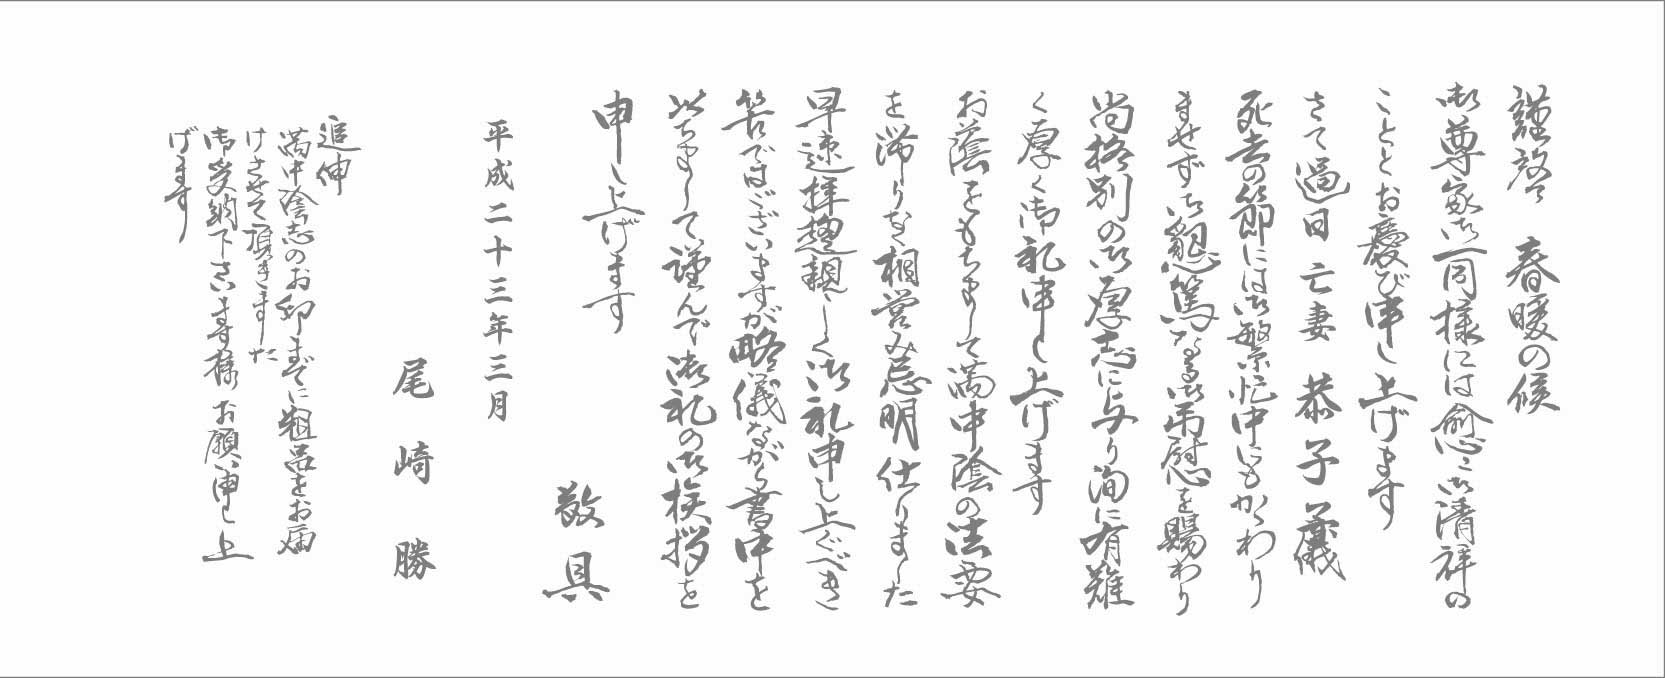 謹啓 春暖の候
御尊家御一同様には愈々御清祥の
こととお慶び申し上げます
さて過日亡妻 恭子 儀
死去の節には御繁忙中にもかゝわり
ませず御懇篤なる御弔慰を賜わり
尚格別の御厚志に与り洵に有難
く厚く御礼申し上げます
お蔭をもちまして満中陰の法要
を滞りなく相営み忌明仕りました
早速拝趨親しく御礼申し上ぐべき
筈ではございますが略儀ながら書中を
以ちまして謹んで御礼の御挨拶を
申し上げます
敬具
平成二十三年三月
尾崎 勝
追伸
満中陰志のお印までに粗品をお届
けさせて頂きました
御受納下さいます様お願い申し上
げます